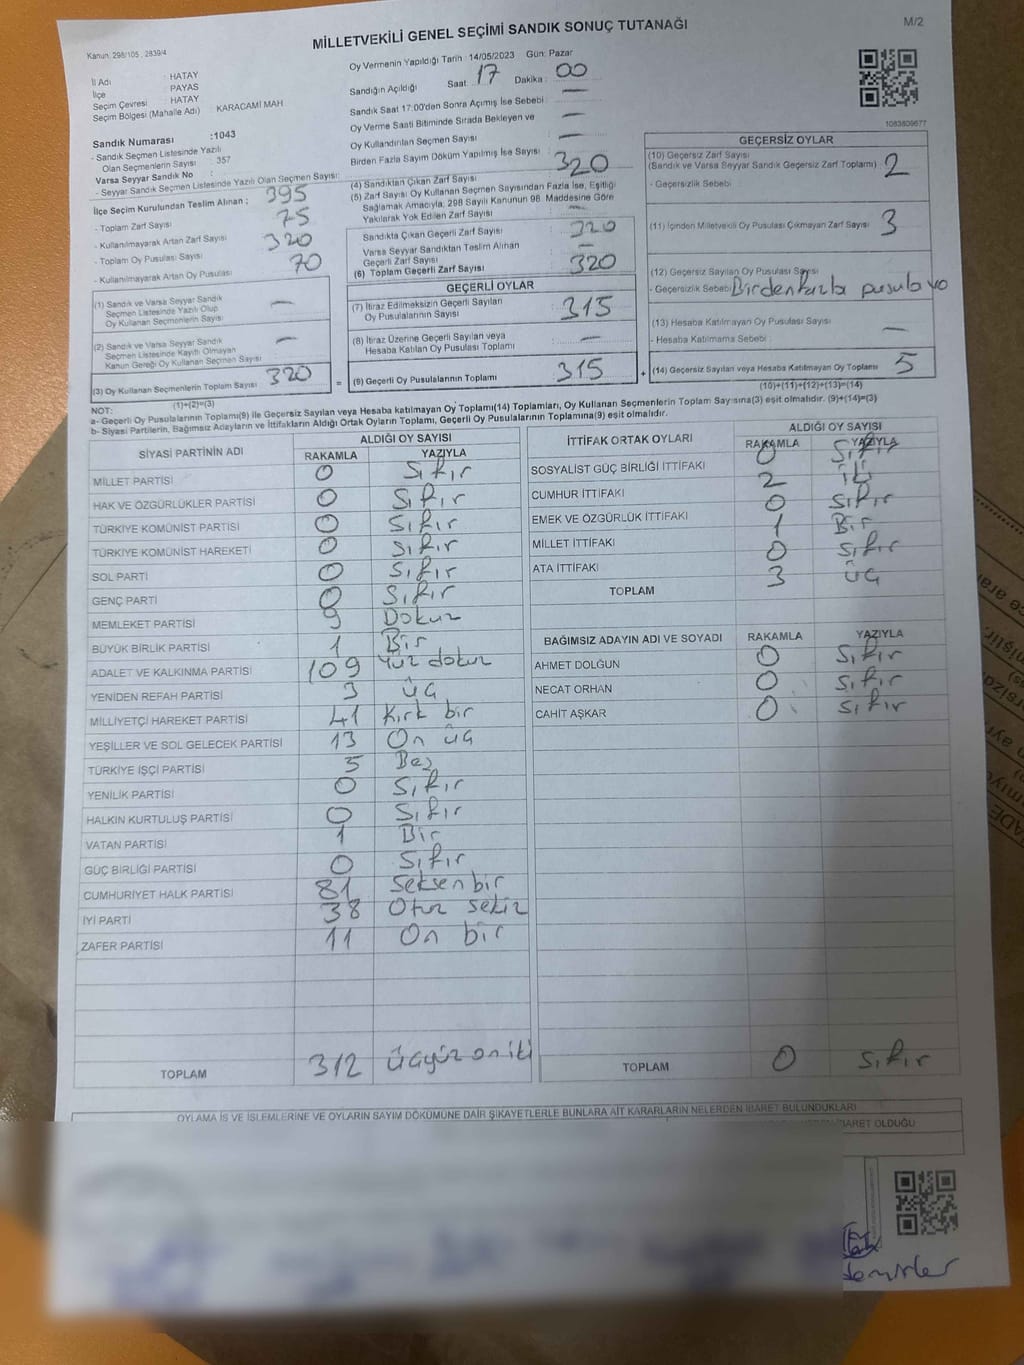 MİLLETVEKİLİ GENEL SEÇİMİ SANDIK SONUÇ TUTANAĞI
M/2
Kanun: 298/105 , 2839/4
İl Adı : HATAY
İlçe : PAYAS
Seçim Çevresi : HATAY
Seçim Bölgesi (Mahalle Adı) : KARACAMİ MAH
Sandık Numarası :1043
- Sandık Seçmen Listesinde Yazılı
Olan Seçmenlerin Sayısı : 357
Varsa Seyyar Sandık No :
- Seyyar Sandık Seçmen Listesinde Yazılı Olan Seçmen Sayısı:
İlçe Seçim Kurulundan Teslim Alınan ;
- Toplam Zarf Sayısı 395
- Kullanılmayarak Artan Zarf Sayısı 75
- Toplam Oy Pusulası Sayısı 320
- Kullanılmayarak Artan Oy Pusulası 70
(1) Sandık ve Varsa Seyyar Sandık
Seçmen Listesinde Yazılı Olup
Oy Kullanan Seçmenlerin Sayısı —
(2) Sandık ve Varsa Seyyar Sandık
Seçmen Listesinde Kayıtlı Olmayan
Kanun Gereği Oy Kullanan Seçmen Sayısı —
(3) Oy Kullanan Seçmenlerin Toplam Sayısı 320
(1)+(2)=(3)
Oy Vermenin Yapıldığı Tarih : 14/05/2023 Gün: Pazar
Sandığın Açıldığı Saat : 17 Dakika : 00
Sandık Saat 17:00'den Sonra Açılmış İse Sebebi : —
Oy Verme Saati Bitiminde Sırada Bekleyen ve
Oy Kullandırılan Seçmen Sayısı : —
Birden Fazla Sayım Döküm Yapılmış İse Sayısı : —
(4) Sandıktan Çıkan Zarf Sayısı 320
(5) Zarf Sayısı Oy Kullanan Seçmen Sayısından Fazla İse, Eşitliği
Sağlamak Amacıyla; 298 Sayılı Kanunun 98. Maddesine Göre
Yakılarak Yok Edilen Zarf Sayısı —
Sandıkta Çıkan Geçerli Zarf Sayısı 320
Varsa Seyyar Sandıktan Teslim Alınan
Geçerli Zarf Sayısı —
(6) Toplam Geçerli Zarf Sayısı 320
GEÇERLİ OYLAR
(7) İtiraz Edilmeksizin Geçerli Sayılan
Oy Pusulalarının Sayısı 315
(8) İtiraz Üzerine Geçerli Sayılan veya
Hesaba Katılan Oy Pusulası Toplamı —
= (9) Geçerli Oy Pusulalarının Toplamı 315 +
1083809677
GEÇERSİZ OYLAR
(10) Geçersiz Zarf Sayısı
(Sandık ve Varsa Seyyar Sandık Geçersiz Zarf Toplamı) 2
- Geçersizlik Sebebi :
(11) İçinden Milletvekili Oy Pusulası Çıkmayan Zarf Sayısı 3
(12) Geçersiz Sayılan Oy Pusulası Sayısı
- Geçersizlik Sebebi : Birden fazla pusula
(13) Hesaba Katılmayan Oy Pusulası Sayısı
- Hesaba Katılmama Sebebi : —
(14) Geçersiz Sayılan veya Hesaba Katılmayan Oy Toplamı 5
(10)+(11)+(12)+(13)=(14)
NOT:
a- Geçerli Oy Pusulalarının Toplamı(9) ile Geçersiz Sayılan veya Hesaba katılmayan Oy Toplamı(14) Toplamları, Oy Kullanan Seçmenlerin Toplam Sayısına(3) eşit olmalıdır. (9)+(14)=(3)
b- Siyasi Partilerin, Bağımsız Adayların ve İttifakların Aldığı Ortak Oyların Toplamı, Geçerli Oy Pusulalarının Toplamına(9) eşit olmalıdır.
SİYASİ PARTİNİN ADI ALDIĞI OY SAYISI
RAKAMLA YAZIYLA
MİLLET PARTİSİ 0 Sıfır
HAK VE ÖZGÜRLÜKLER PARTİSİ 0 Sıfır
TÜRKİYE KOMÜNİST PARTİSİ 0 Sıfır
TÜRKİYE KOMÜNİST HAREKETİ 0 Sıfır
SOL PARTİ 0 Sıfır
GENÇ PARTİ 0 Sıfır
MEMLEKET PARTİSİ 9 Dokuz
BÜYÜK BİRLİK PARTİSİ 1 Bir
ADALET VE KALKINMA PARTİSİ 109 Yüz dokuz
YENİDEN REFAH PARTİSİ 3 üç
MİLLİYETÇİ HAREKET PARTİSİ 41 Kırk bir
YEŞİLLER VE SOL GELECEK PARTİSİ 13 On üç
TÜRKİYE İŞÇİ PARTİSİ 5 Beş
YENİLİK PARTİSİ 0 Sıfır
HALKIN KURTULUŞ PARTİSİ 0 Sıfır
VATAN PARTİSİ 1 Bir
GÜÇ BİRLİĞİ PARTİSİ 0 Sıfır
CUMHURİYET HALK PARTİSİ 81 Seksen bir
İYİ PARTİ 38 Otuz sekiz
ZAFER PARTİSİ 11 On bir
TOPLAM 312 üçyüz on iki
İTTİFAK ORTAK OYLARI ALDIĞI OY SAYISI
RAKAMLA YAZIYLA
SOSYALİST GÜÇ BİRLİĞİ İTTİFAKI 0 Sıfır
CUMHUR İTTİFAKI 2 iki
EMEK VE ÖZGÜRLÜK İTTİFAKI 0 Sıfır
MİLLET İTTİFAKI 1 Bir
ATA İTTİFAKI 0 Sıfır
TOPLAM 3 üç
BAĞIMSIZ ADAYIN ADI VE SOYADI RAKAMLA YAZIYLA
AHMET DOLĞUN 0 Sıfır
NECAT ORHAN 0 Sıfır
CAHİT AŞKAR 0 Sıfır
TOPLAM 0 Sıfır
OYLAMA İŞ VE İŞLEMLERİNE VE OYLARIN SAYIM DÖKÜMÜNE DAİR ŞİKAYETLERLE BUNLARA AİT KARARLARIN NELERDEN İBARET BULUNDUKLARI
İBARET OLDUĞU